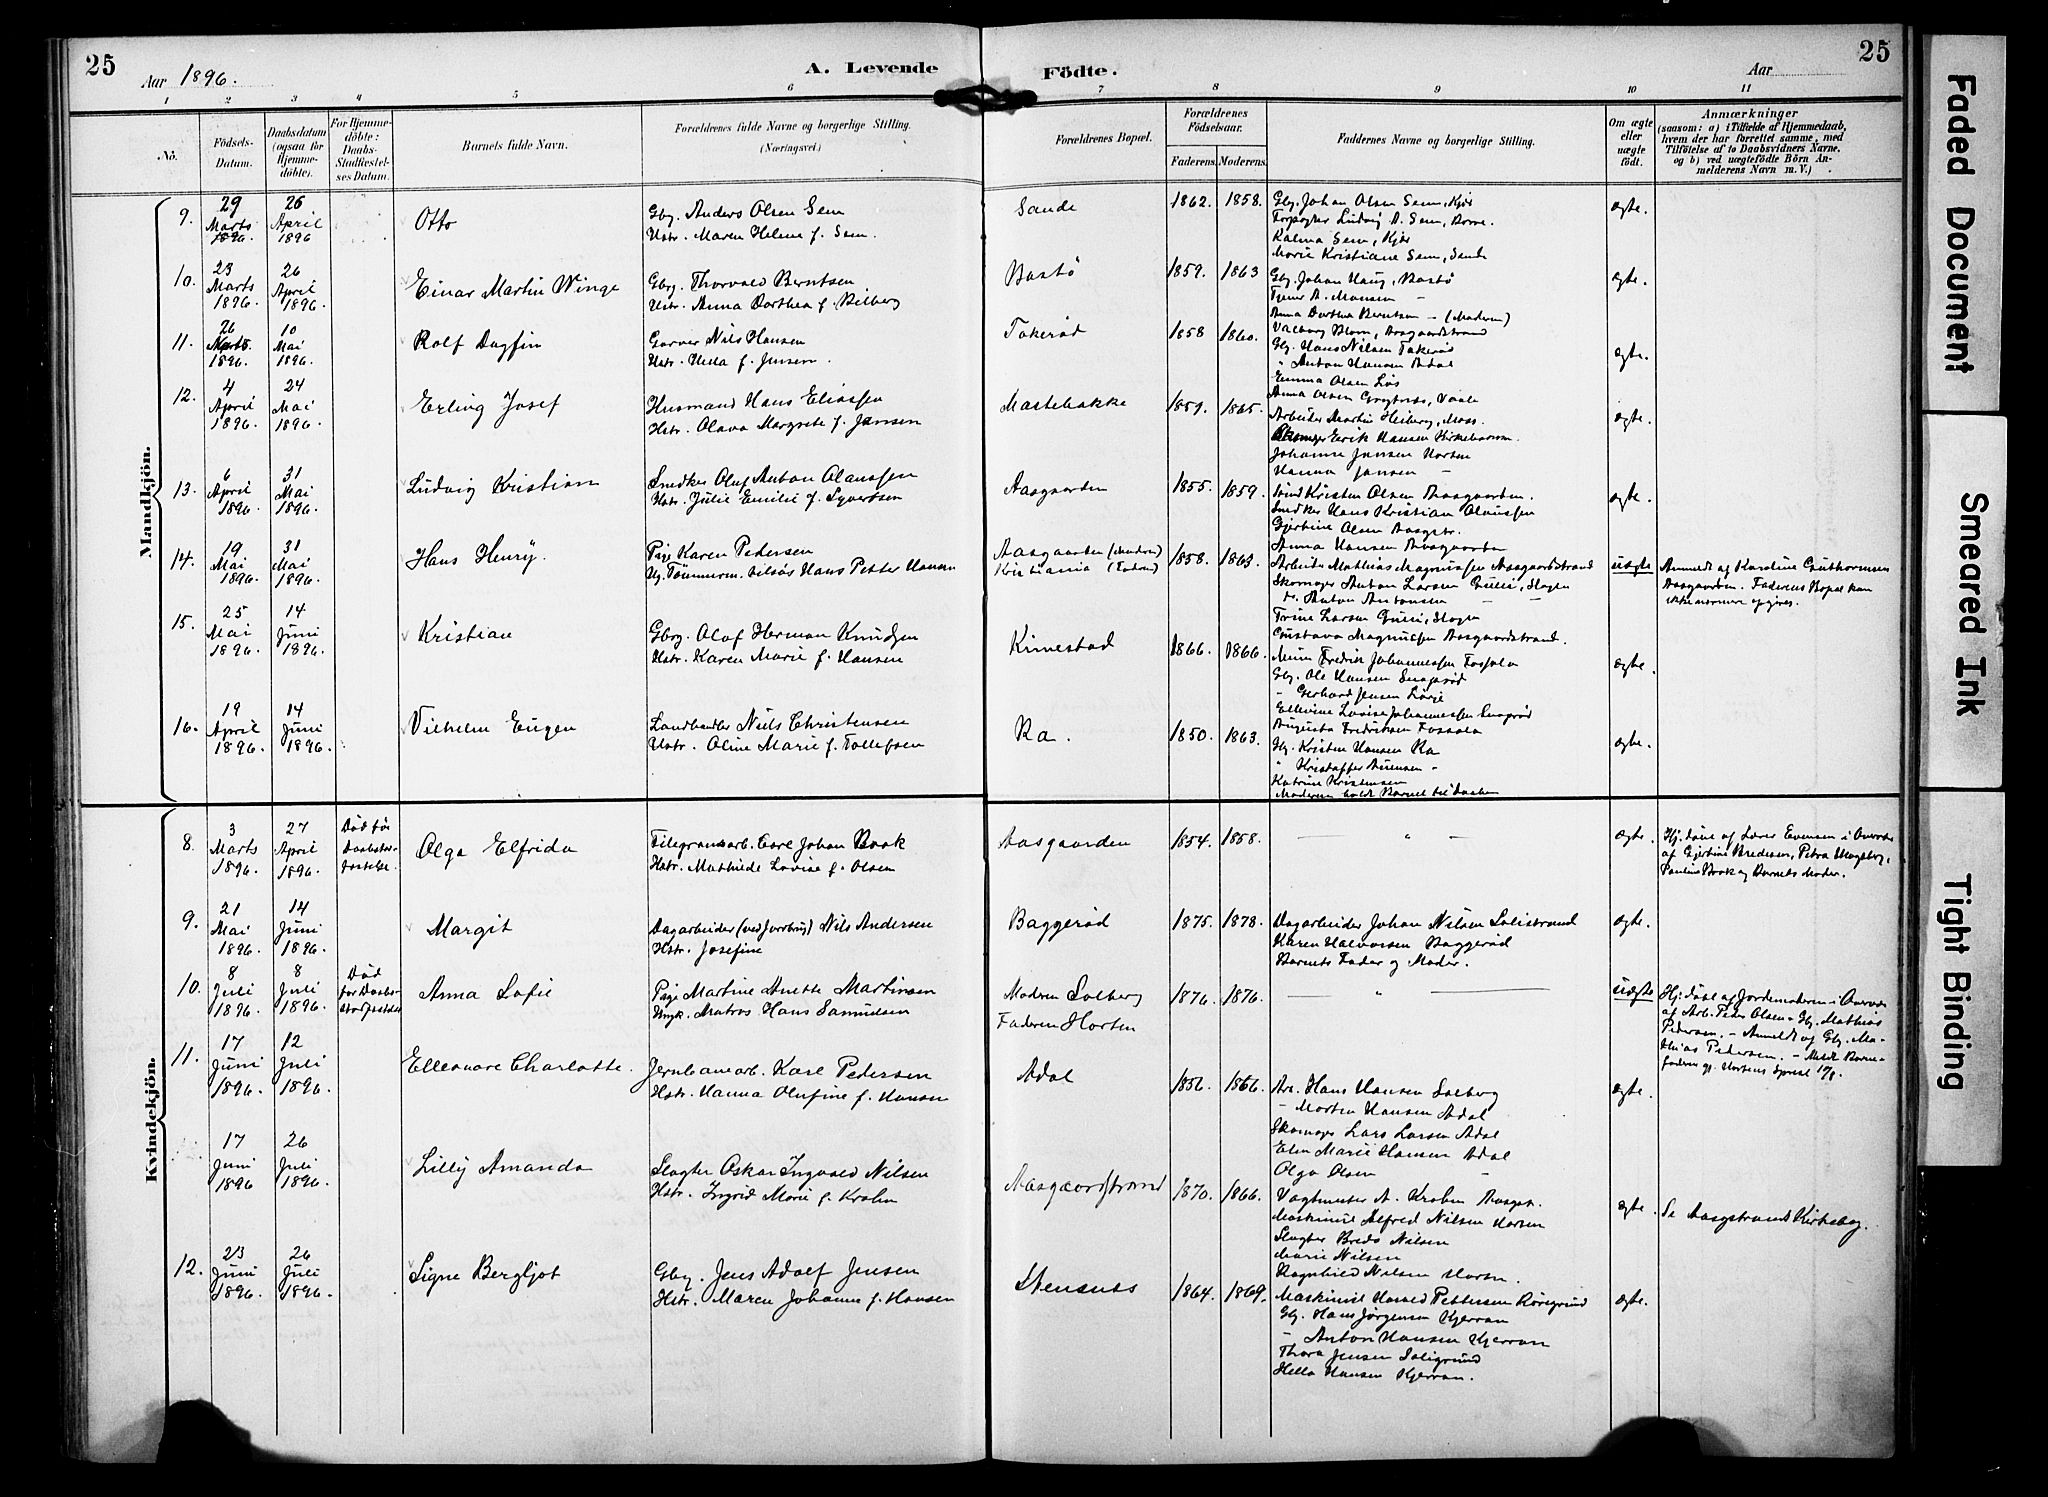 25
Aar 1896.
A. Levende
Födte.
Aar
25
1 2 3 4 5 6 7 8 9 10 11
No.
Födsels-Datum.
Daabsdatum (ogsaa for Hjemme-döbte).
For Hjemme-döbte: Daabs-Stadfæstel-ses Datum.
Barnets fulde Navn.
Forældrenes fulde Navne og borgerlige Stilling.
(Næringsvei.)
Forældrenes Bopæl.
Forældrenes Födselsaar.
Faderens. Moderens.
Faddernes Navne og borgerlige Stilling.
Om ægte eller uægte födt.
Anmærkninger
(saasom: a) i Tilfælde af Hjemmedaab, hvem der har forrettet samme, med Tilföielse af to Daabsvidners Navne, og b) ved uægtefödte Börn An-melderens Navn m. V.)
Mandkjön.
9. 29 Marts 1896. 26 April 1896 Otto
Gbg. Anders Olsen Sem
Hstr. Maren Helene f. Sem.
Sande 1862. 1858.
Gbg. Johan Olsen Sem, Kjær
Forpagter Ludvig A. Sem, Borre.
Kalma Sem, Kjær
Marie Kristiane Sem, Sande
ægte.
10. 23 Marts 1896. 26 April 1896. Einar Martin Winge
Gbrg. Thorvald Berntsen
Hstr. Anna Dorthea f. Bilberg
Bastö 1859. 1863
Gbg. Johan Haug, Bastö
Tjener A. Monsen –
Anna Dorthea Berntsen – (Moderen)
ægte.
11. 26 1896. 10 Mai 1896. Rolf Dagfin
Garver Nils Hansen
Hstr. Hilda f. Jensen.
Takeröd 1858 1860.
Valborg Blom, Aasgaardstrand
Gbg. Hans Nilsen Takeröd
" Anton Hansen Adal
Emma Olsen Lös
ægte.
12. 4 April 1896. 24 Mai 1896. Erling Josef
Husmand Hans Eliassen
Hstr. Olava Margrete f. Jansen
Mastebakke 1859. 1865.
Arbeider Martin Heiberg, Moss.
Skomager Erik Hansen Kirkebakken.
Johanne Jansen Horten
Hanna Jansen –
ægte.
13. 6 April 1896. 31 Mai 1896. Ludvig Kristian
Snedker Oluf Anton Olaussen
Hstr. Julie Emilie f. Syvertsen
Aasgaarden 1855. 1859.
Kristen Olsen Aasgaarden.
Snedker Hans Kristian Olaussen
Gjertine Olsen Aasgstr.
Anna Hansen Aasgaarden
ægte.
14. 19 Mai 1896. 31 Mai 1896. Hans Henry.
Pige Karen Pedersen
Ug. Tömmerm. Hans Petter Hansen
Aasgaarden (Moderen)
Kristiania (Faderen)
1858. 1863.
Arbeider Mathias Magnussen Aasgaardstrand
Skomager Anton Larsen Gulli, Slagen
do. Anton Antonsen – –
Trine Larsen Gulli, Slagen
Gustava Magnussen Aasgaardstrand.
uægte
Anmeldt af Karoline Guthormsen Aasgaarden. Faderens Bopæl kan ikke nærmere opgives.
15. 25 Mai 1896. 14 Juni 1896. Kristian
Gbrg. Olaf Herman Knudsen
Hstr. Karen Marie f. Hansen
Kirnestad 1866. 1866.
Murer Fredrik Johannessen Fossola
Gbg. Ole Hansen Snapsröd
– Gerhard Jensen
Ellevine Lovise Johannessen Snapsröd
Augusta Fredriksen Fossola
ægte.
16. 19 April 1896. 14 Juni 1896. Vilhelm Eugen
Landhandler Nils Christensen
Hstr. Oline Marie f. Tollefsen
Ra. 1850. 1863.
Gbg. Kristen Hansen Ra
" Kristoffer –
Katrine Kristensen
Moderen holdt Barnet til Daaben
ægte.
Kvindekjön.
8. 3 Marts 1896. 27 April 1896. Död för Daabstad-fæstelse. Olga Elfrida
Filegransarb. Carl Johan Book
Hstr. Mathilde Lovise f. Olsen
Aasgaarden 1854. 1858.
— " —
ægte.
Hj. döbt af Lærer Evensen i Overvær af Gjertine Bredesen, Petra Haugberg, Pauline Book og Barnets Moder.
9. 21 Mai 1896. 14 Juni 1896. Margit
Dagarbeider (ved Jordbrug) Nils Andersen
Hstr. Josefine
Baggeröd 1875. 1878.
Dagarbeider Johan Nilsen Solistrand
Karen Halvorsen Baggeröd
Barnets Fader og Moder.
ægte.
10. 8 Juli 1896. 8 Juli 1896. Död för Daabs-stadfæstelse Anna Sofie
Pige Martine Anette Martinsen
Ungk. Matros Hans Samuelsen
Moderen Solberg
Faderen Horten
1876. 1876.
— " —
uægte
Hj. döbt af Jordemoderen i Overvær af Arb. Peder Olsen & Gbg. Mathias Pedersen. – Anmeldt af Gbg. Mathias Pedersen. – Meldt Barne-faderen gj. Hortens Sprest 17/8.
11. 17 Juni 1896. 12 Juli 1896. Elleonore Charlotte.
Jernbanearb. Karl Pedersen
Hstr. Hanna Olufine f. Hansen
Adal 1856. 1866.
Arb. Hans Hansen Solberg
– Morten Hansen Adal
Skomager Lars Larsen Adal
Elen Marie Hansen Adal
Olga Olsen –
ægte.
17 Juni 1896 26 Juli 1896. Lilly Amanda
Slagter Oskar Ingvald Nilsen
Hstr. Ingrid Marie f. Krohn
Aasgaardstrand 1870. 1866.
Vagtmester A. Krohn Aasgst.
Maskinist Alfred Nilsen Horten
Slagter Bredo Nilsen
Marie Nilsen
Ragnhild Nilsen Horten.
ægte.
Se Aasgstrands Kirkebog.
12. 23 Juni 1896. 26 Juli 1896. Signe Bergljot
Gbg. Jens Adolf Jensen
Hstr. Maren Johanne f. Hansen
Stensnes 1864. 1869.
Maskinist Harald Pettersen Röregrund
Gbg. Hans Jörgensen Kjerran
– Anton Hansen Kjerran
Thora Jensen Soligrund
Hella Hansen Kjerran.
ægte.
Faded Document
Smeared Ink
Tight Binding